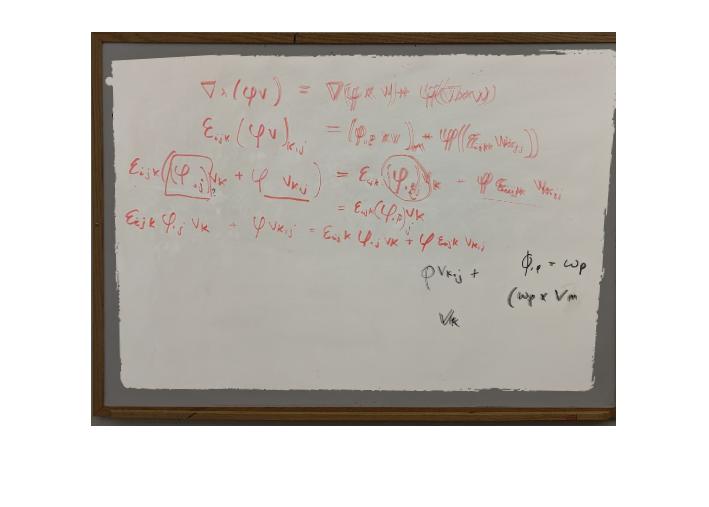 ∇ × (φv) = ∇(φ × v) + φ(∇ × v)
ε_ijk (φv)_k,j = (φ,
ε_ijk ((φ,j) v_k + φ v_k,j) = ε_ijk (φ,j) v_k + φ
= ε_ijk (φ,j) v_k
ε_ijk φ,j v_k + φ v_k,j = ε_ijk φ,j v_k + φ ε_ijk v_k,j
φ v_k,j + φ,p = ω_p
(ω_p × v_m
v_k